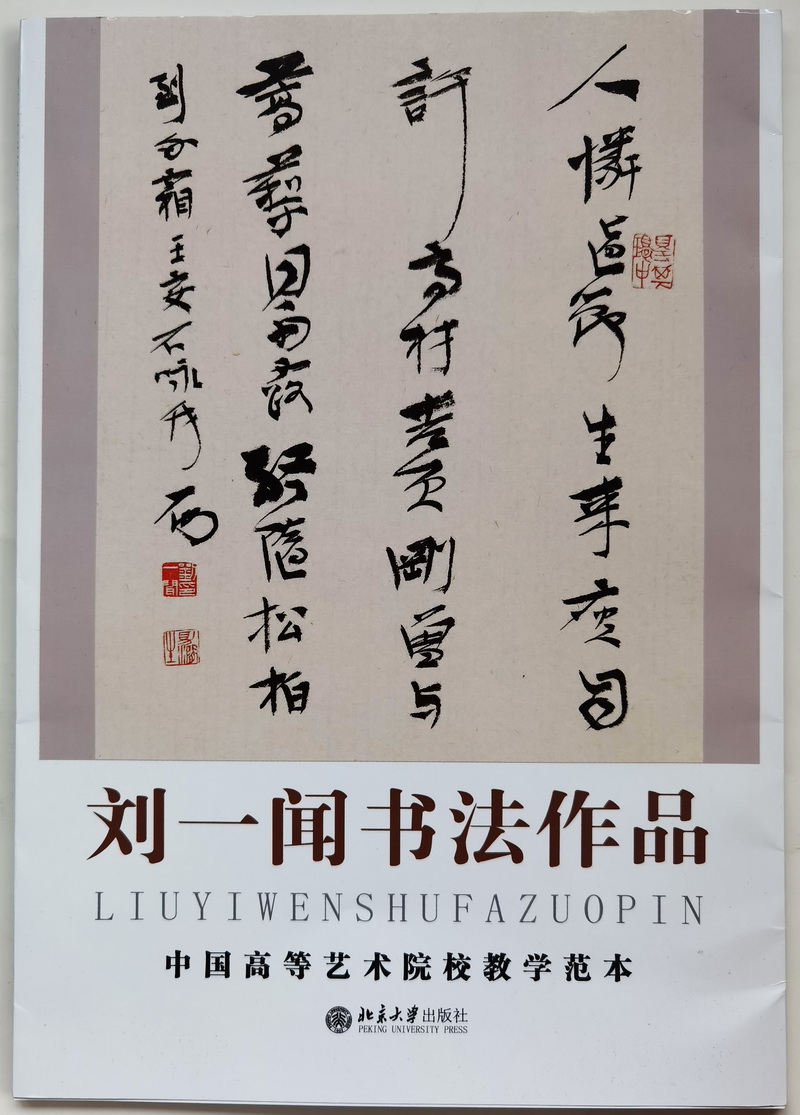 人憐直節生来瘦自
許高材老更剛曾与
蒿藜同雨露終隨松柏
到冰霜王安石咏竹
刘一闻书法作品
LIUYIWENSHUFAZUOPIN
中国高等艺术院校教学范本
北京大学出版社
PEKING UNIVERSITY PRESS